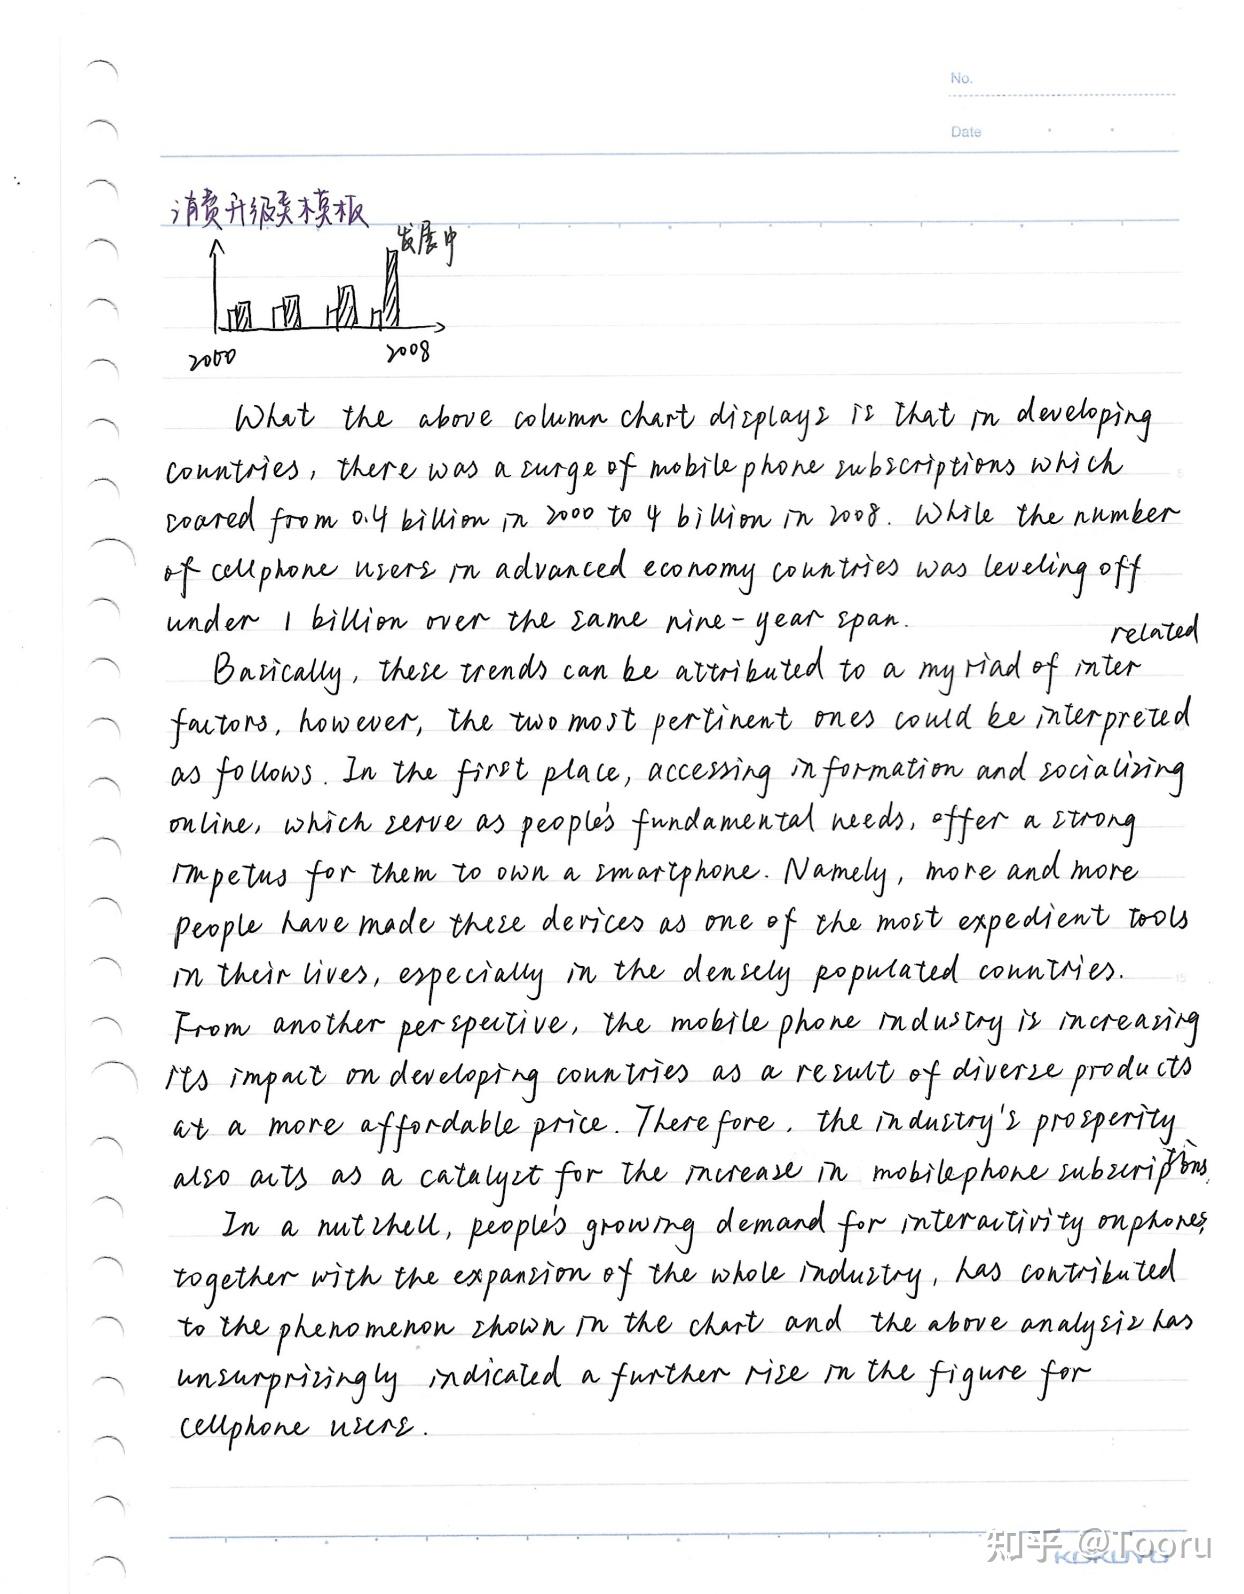 No.
Date
消费升级类模板
发展中
2000 2008
What the above column chart displays is that in developing
countries, there was a surge of mobile phone subscriptions which
soared from 0.4 billion in 2000 to 4 billion in 2008. While the number
of cellphone users in advanced economy countries was leveling off
under 1 billion over the same nine-year span.
related
Basically, these trends can be attributed to a myriad of inter
factors, however, the two most pertinent ones could be interpreted
as follows. In the first place, accessing information and socializing
online, which serve as people's fundamental needs, offer a strong
impetus for them to own a smartphone. Namely, more and more
people have made these devices as one of the most expedient tools
in their lives, especially in the densely populated countries.
From another perspective, the mobile phone industry is increasing
its impact on developing countries as a result of diverse products
at a more affordable price. Therefore, the industry's prosperity
also acts as a catalyst for the increase in mobilephone subscriptions.
In a nutshell, people's growing demand for interactivity on phones,
together with the expansion of the whole industry, has contributed
to the phenomenon shown in the chart and the above analysis has
unsurprisingly indicated a further rise in the figure for
cellphone users.
知乎 @Tooru
KOKUYO